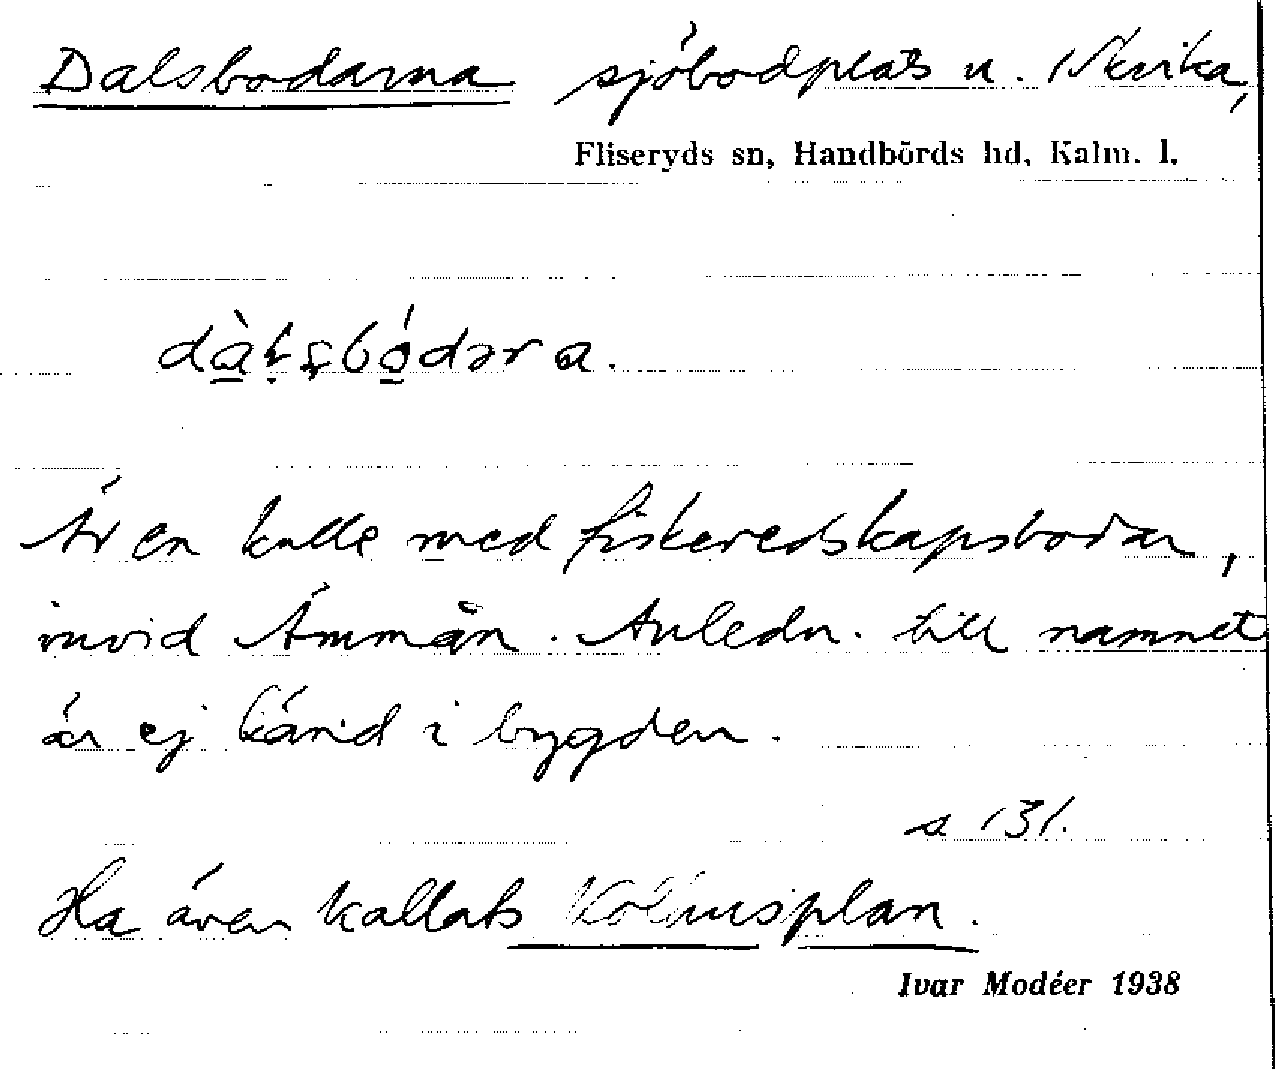 Dalsbodarna sjöbodplats u. Skvika,
Fliseryds sn, Handbörds hd, Kalm. l.
Är en kulle med fiskeredskapsbodar,
invid Ämmån. Anledn. till namnet
är ej känd i bygden.
s 131.
Ha även kallats Kölhusplan.
Ivar Modéer 1938